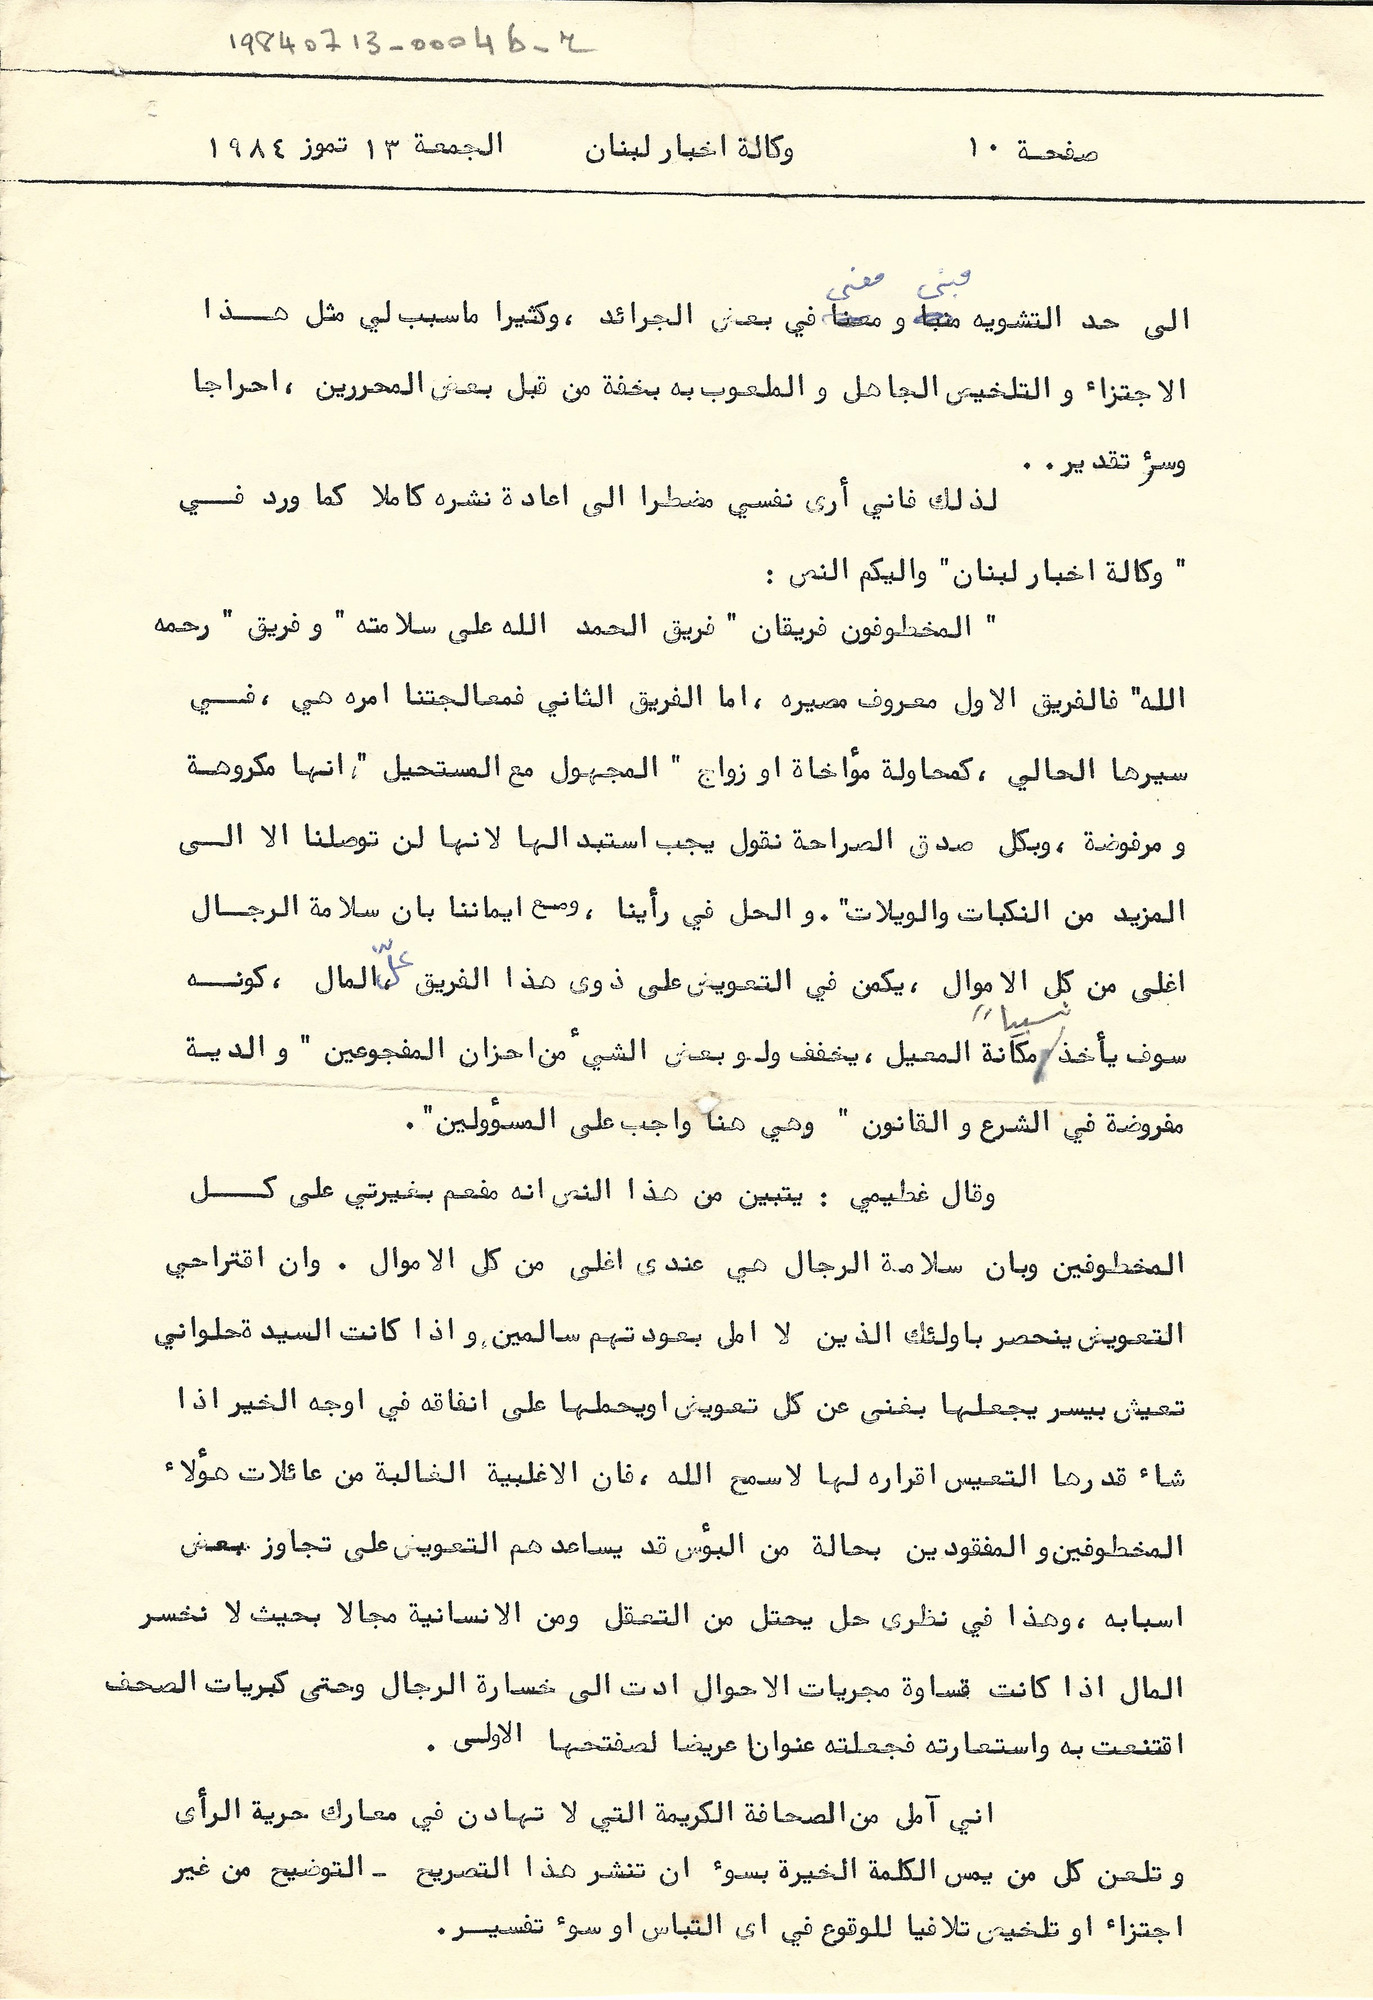 19840713-0004b-r
صفحة ١٠ وكالة اخبار لبنان الجمعة ١٣ تموز ١٩٨٤
مبنى معنى
الى حد التشويه منبا و معنا في بعض الجرائد ،وكثيرا ماسبب لي مثل هـــذا
الاجتزاء و التلخيص الجاهل و الملعوب به بخفة من قبل بعض المحررين ،احراجا
وسؤ تقدير..
لذلك فاني أرى نفسي مضطرا الى اعادة نشره كاملا كما ورد فـــي
" وكالة اخبار لبنان" واليكم النص :
" المخطوفون فريقان " فريق الحمد الله على سلامته " و فريق " رحمه
الله" فالفريق الاول معروف مصيره ،اما الفريق الثاني فمعالجتنا امره هي ،فـــي
سيرها الحالي ،كمحاولة مؤاخاة او زواج " المجهول مع المستحيل "،انها مكروهـة
و مرفوضة ،وبكل صدق الصراحة نقول يجب استبدالها لانها لن توصلنا الا الـــى
المزيد من النكبات والويلات".و الحل في رأينا ،ومـع ايماننا بان سلامة الرجـــال
اغلى من كل الاموال ،يكمن في التعويض على ذوى هذا الفريق علّ المال ،كونـــه
نسبيا"
سوف يأخذ/مكانة المعيل ،يخفف ولـو بعض الشيء من احزان المفجوعين " و الديـة
مفروضة في الشرع و القانون " وهي هنا واجب على المسؤولين".
وقال غطيمي : يتبين من هذا النص انه مفعم بغيرتي على كـــل
المخطوفين وبان سلامة الرجال هي عندى اغلى من كل الاموال . وان اقتراحي
التعويض ينحصر باولئك الذين لا امل بعودتهم سالمين,و اذا كانت السيدة حلواني
تعيش بيسر يجعلها بغنى عن كل تعويض اويحملها على انفاقه في اوجه الخير اذا
شاء قدرها التعيس اقراره لها لاسمح الله ،فان الاغلبية الغالبة من عائلات هؤلاء
المخطوفين و المفقودين بحالة من البؤس قد يساعدهم التعويض على تجاوز بعض
اسبابه ،وهذا في نظرى حل يحتل من التعقل ومن الانسانية مجالا بحيث لا نخسر
المال اذا كانت قساوة مجريات الاحوال ادت الى خسارة الرجال وحتى كبريات الصحف
اقتنعت به واستعارته فجعلته عنوانا عريضا لصفتحها الاولـى .
اني آمل من الصحافة الكريمة التي لا تهادن في معارك حرية الرأى
و تلعن كل من يمس الكلمة الخيرة بسوء ان تنشر هذا التصريح ـ التوضيح من غير
اجتزاء او تلخيص تلافيا للوقوع في اى التباس او سوء تفسيــر.